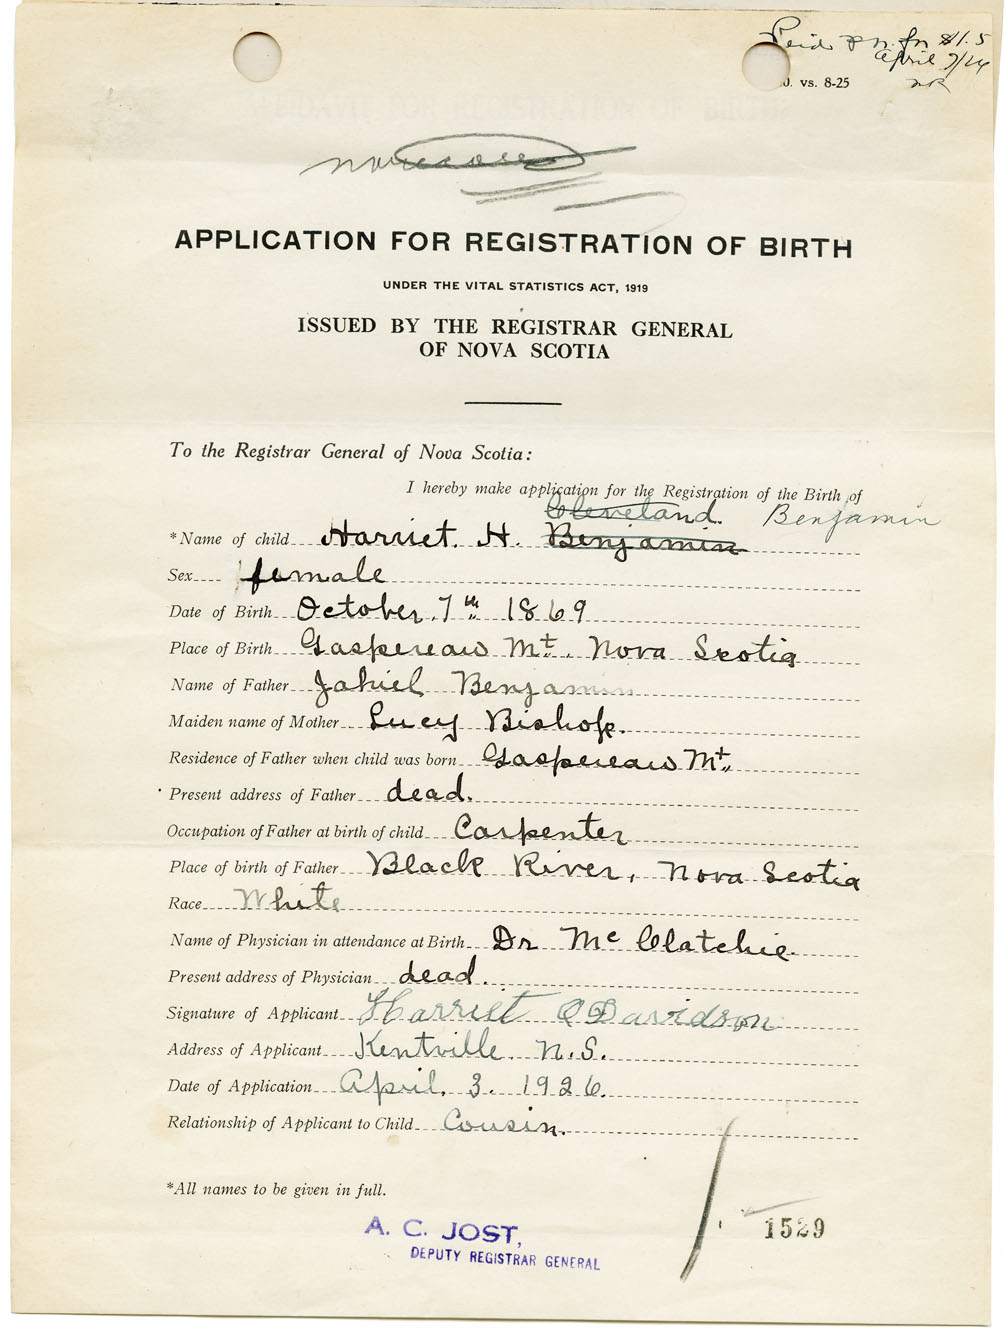 Paid
$1.5
April 7/26
vs. 8-25
APPLICATION FOR REGISTRATION OF BIRTH
UNDER THE VITAL STATISTICS ACT, 1919
ISSUED BY THE REGISTRAR GENERAL
OF NOVA SCOTIA
To the Registrar General of Nova Scotia:
I hereby make application for the Registration of the Birth of
Cleveland. Benjamin
*Name of child Harriet. H. Benjamin
Sex female
Date of Birth October, 7th 1869
Place of Birth Gaspereau Mt. Nova Scotia
Name of Father Jahiel Benjamin
Maiden name of Mother Lucy Bishop.
Residence of Father when child was born Gaspereau Mt.
Present address of Father dead.
Occupation of Father at birth of child Carpenter
Place of birth of Father Black River, Nova Scotia
Race White
Name of Physician in attendance at Birth Dr Mc Clatchie.
Present address of Physician dead.
Signature of Applicant Harriet O Davidson
Address of Applicant Kentville, N.S.
Date of Application April. 3. 1926.
Relationship of Applicant to Child Cousin.
*All names to be given in full.
A. C. JOST,
DEPUTY REGISTRAR GENERAL
1529